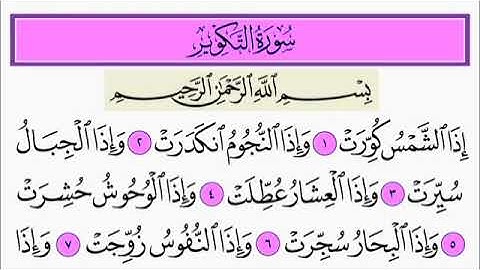 سُورَةُ التَّكْوِيرِ
بِسْمِ اللَّهِ الرَّحْمَٰنِ الرَّحِيمِ
إِذَا الشَّمْسُ كُوِّرَتْ ١ وَإِذَا النُّجُومُ انْكَدَرَتْ ٢ وَإِذَا الْجِبَالُ
سُيِّرَتْ ٣ وَإِذَا الْعِشَارُ عُطِّلَتْ ٤ وَإِذَا الْوُحُوشُ حُشِرَتْ
٥ وَإِذَا الْبِحَارُ سُجِّرَتْ ٦ وَإِذَا النُّفُوسُ زُوِّجَتْ ٧ وَإِذَا